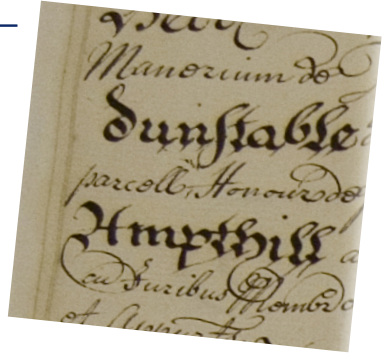 Manerium de
Dunstable
parcell Honour de
Ampthill
cu Juribus Membr
et